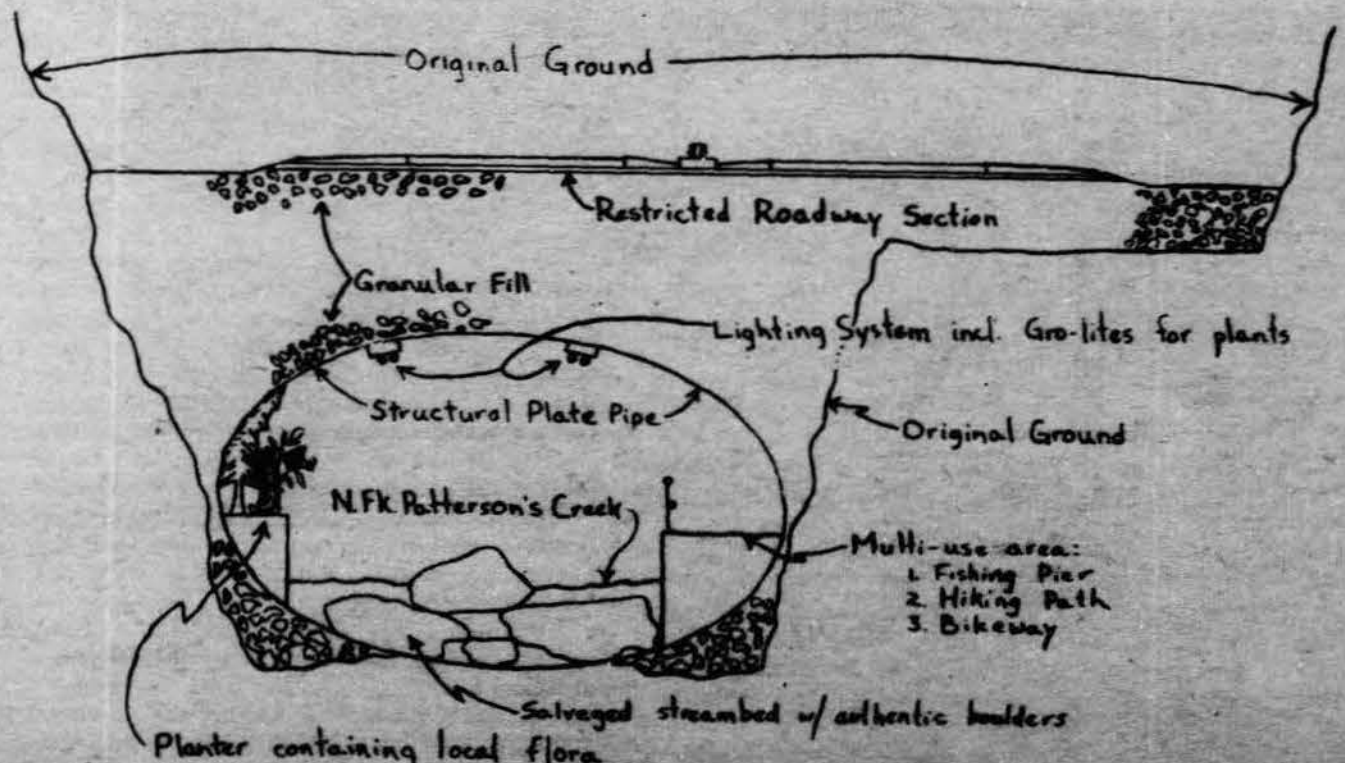 Original Ground
Restricted Roadway Section
Granular Fill
Lighting System incl. Gro-lites for plants
Structural Plate Pipe
Original Ground
N.Fk. Patterson's Creek
Multi-use area:
1. Fishing Pier
2. Hiking Path
3. Bikeway
Salvaged streambed w/ authentic boulders
Planter containing local flora